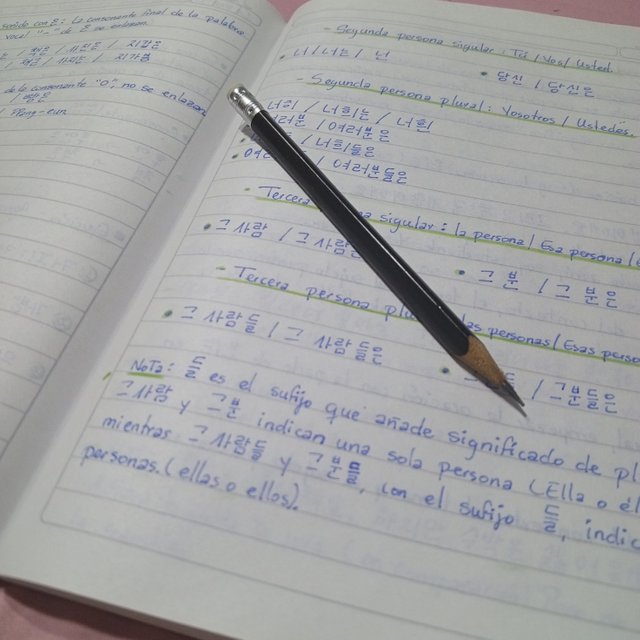 sonido con 은: La consonante final de la palabra
vocal "ㅡ" de 은 se enlazan.
/ 책은 / 사진은 / 지갑은
de la consonante "ㅇ", no se enlazan
- Segunda persona sigular: Tú / Vos / Usted.
너 / 너는 / 넌
당신 / 당신은
- Segunda persona plural: Vosotros / Ustedes.
너희 / 너희는 / 너흰
여러분 / 여러분은
/ 너희들은
/ 여러분들은
- Tercera sigular: la persona / Esa persona /
그 사람 / 그 사람은
그 분 / 그 분은
- Tercera persona las personas / Esas
그 사람들 / 그 사람들은
/ 그분들은
Nota: 들 es el sufijo que añade significado de
그사람 y 그분 indican una sola persona (Ella o él
mientras 그사람들 y 그분들, con el sufijo 들,
personas. (ellas o ellos).